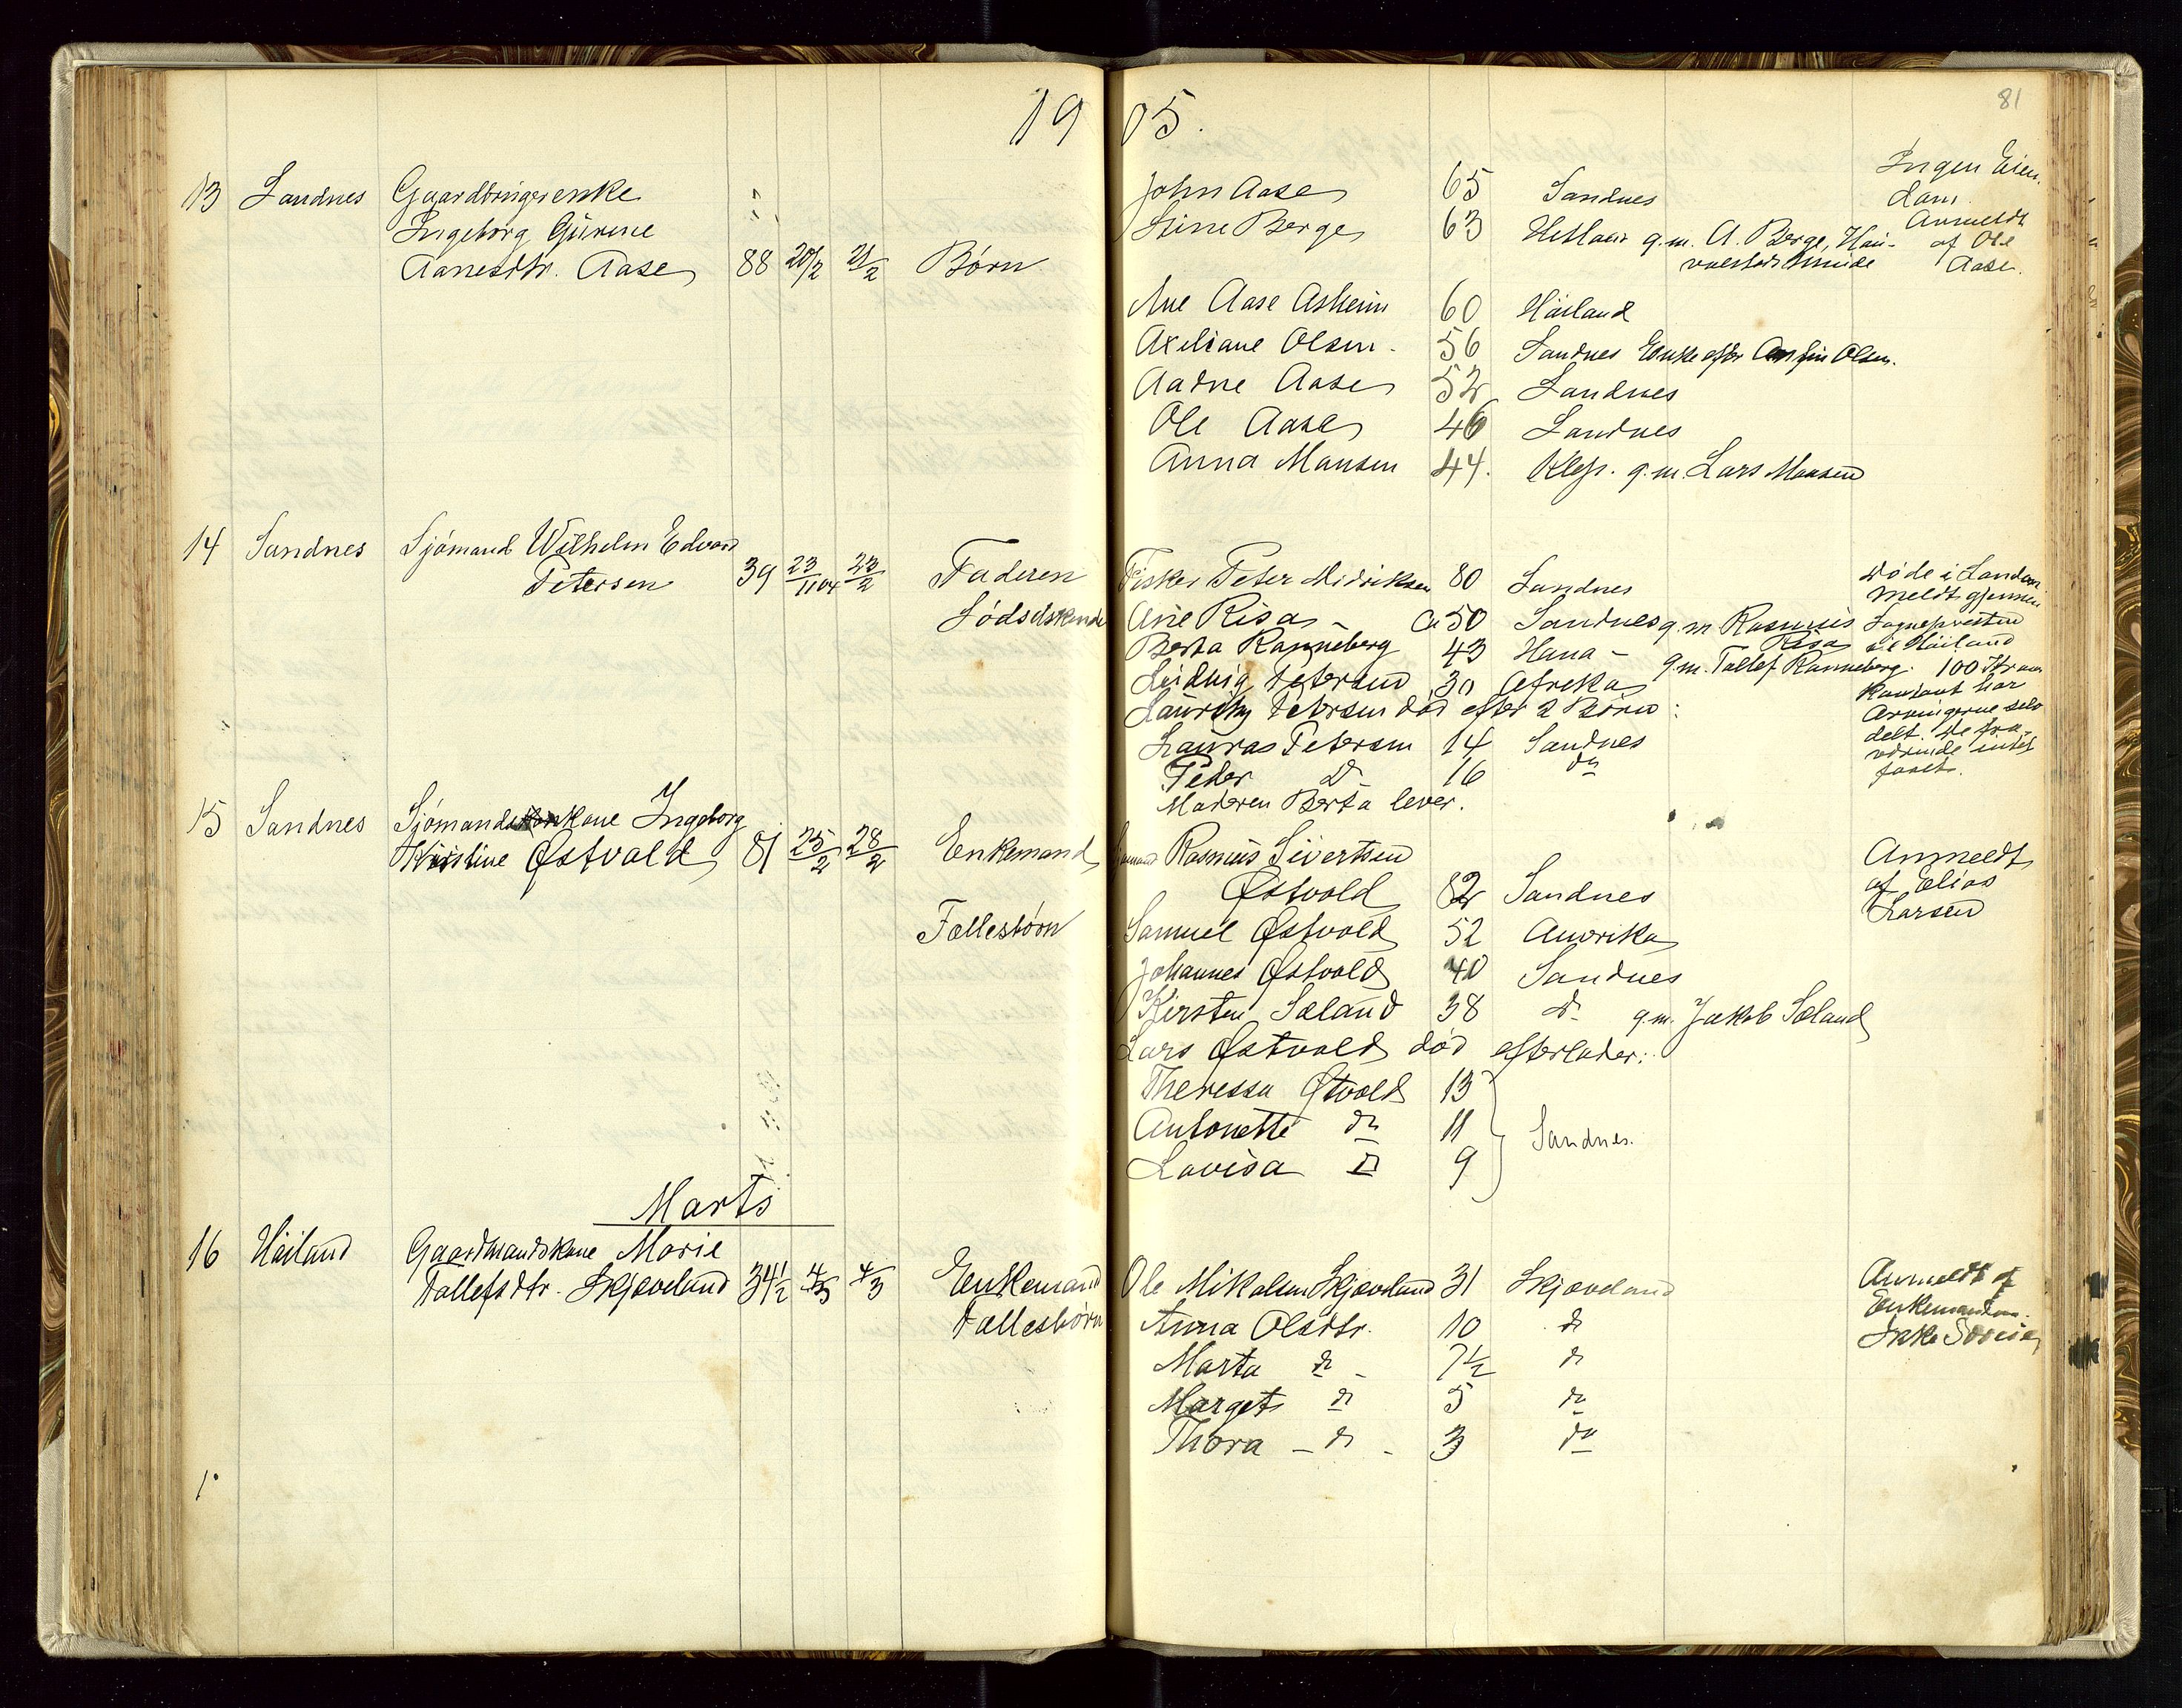 1905.
81
13 Sandnes Gaardbrugerenke
Ingeborg Gurine
Aanestdtr. Aase 88 20/2 21/2 Børn
John Aase 65 Sandnes
Stine Berge 63 Hetland g.m. A. Berge,
Ane Aase Asheim 60 Höiland
Axeliane Olsen 56 Sandnes Enke efter Olsen.
Aadne Aase 52 Sandnes
Ole Aase 46 Sandnes
Anna Monsen 44. Klep. g.m. Lars Monsen
Ingen Eien-
dom
Anmeldt
af Ole
Aase.
14 Sandnes Sjömand Wilhelm Edvard
Petersen 39 23/11 04 23/2 Faderen
Södsdskende
Fisker Peter Midriksen 80 Sandnes
Ane Risa - Ca 50 Sandnes g.m. Rasmus
Risa
Berta Ranneberg 43 Hana - g.m. Tollef Ranneberg.
Ludvig Petersen 30 Afrika
Lauritz Petersen död efter 2 Börn:
Lauras Petersen 14 Sandnes
Peder D 16 do
Moderen Berta lever.
Döde i London
meldt gjennem
Sognepresten
i Höiland
100 Kroner
kontant har
Arvingerne selv
delt. De fra-
værende intet
faaet.
15 Sandnes Sjömandskone Ingeborg
Kristine Østvold 81 25/2 28/2 Enkemand
Rasmus Sivertsen
Østvold 82 Sandnes
Fællesbörn
Samuel Østvold 52 Amerika
Johannes Østvold 40 Sandnes
Kirsten Sæland 38 D. g.m. Jakob Sæland
Lars Østvold död efterlader:
Theressa Østvold 13
Antonette do 11
Lovisa D 9
Sandnes.
Anmeldt
af Elias
Larsen
Marts
16 Höiland Gaardmandskone Marie
Tollefsdtr. Skjæveland 34 1/2 4/3 4/3 Enkemand
Fællesbörn
Ole Mikalsen Skjæveland 31 Skjæveland
Anna Olsdtr. 10 do
Marta do - 7 1/2 do
Marget do 5 do
Thora - do - 3 do
Anmeldt af
Enkemanden.
1